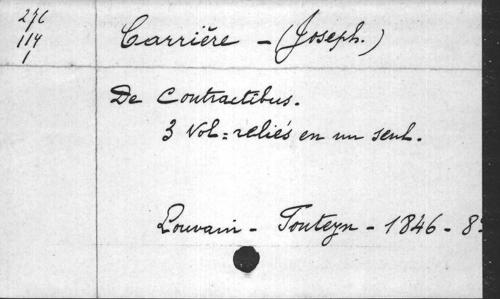 276
114
1
Carrière - (Joseph.)
De Contractibus.
3 Vol = reliés en un seul.
Louvain - Fonteyn - 1846 - 8º